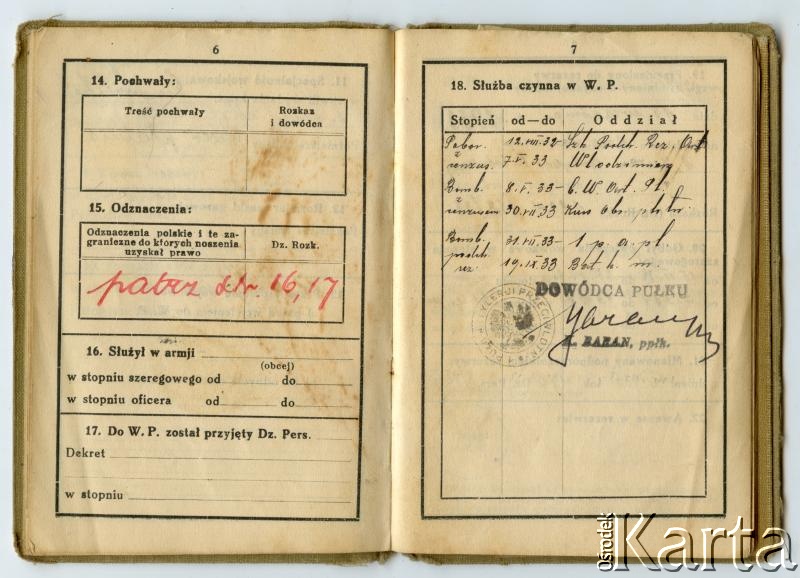 6
14. Pochwały:
Treść pochwały
Rozkaz
i dowódca
15. Odznaczenia:
Odznaczenia polskie i te za-
graniczne do których noszenia
uzyskał prawo
Dz. Rozk.
patrz str. 16, 17
16. Służył w armji
(obcej)
w stopniu szeregowego od do
w stopniu oficera od do
17. Do W. P. został przyjęty Dz. Pers.
Dekret
w stopniu
7
18. Służba czynna w W. P.
Stopień od—do Oddział
12.VIII.32- Szk. Podch. Rez. Art
7.V.33 Włodzimierz
Bomb. 8.V.33- C. W. Art. Pl.
30.VII.33 Kurs
Bomb. 31.VII.33- 1 p. a. pl.
podch.
rez. 19.IX.33
DOWÓDCA PUŁKU
BARAN, ppłk.
Ośrodek
Karta